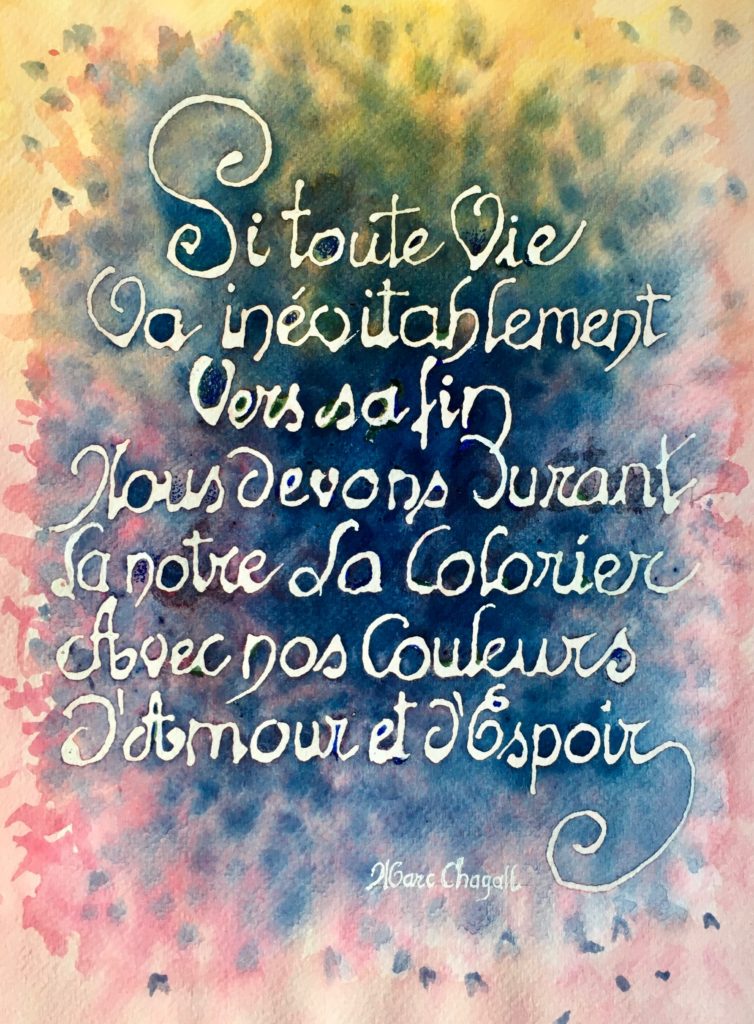 Si toute Vie
Va inévitablement
Vers sa fin
Nous devons Durant
La notre La Colorier
Avec nos Couleurs
D'Amour et d'Espoir
Marc Chagall